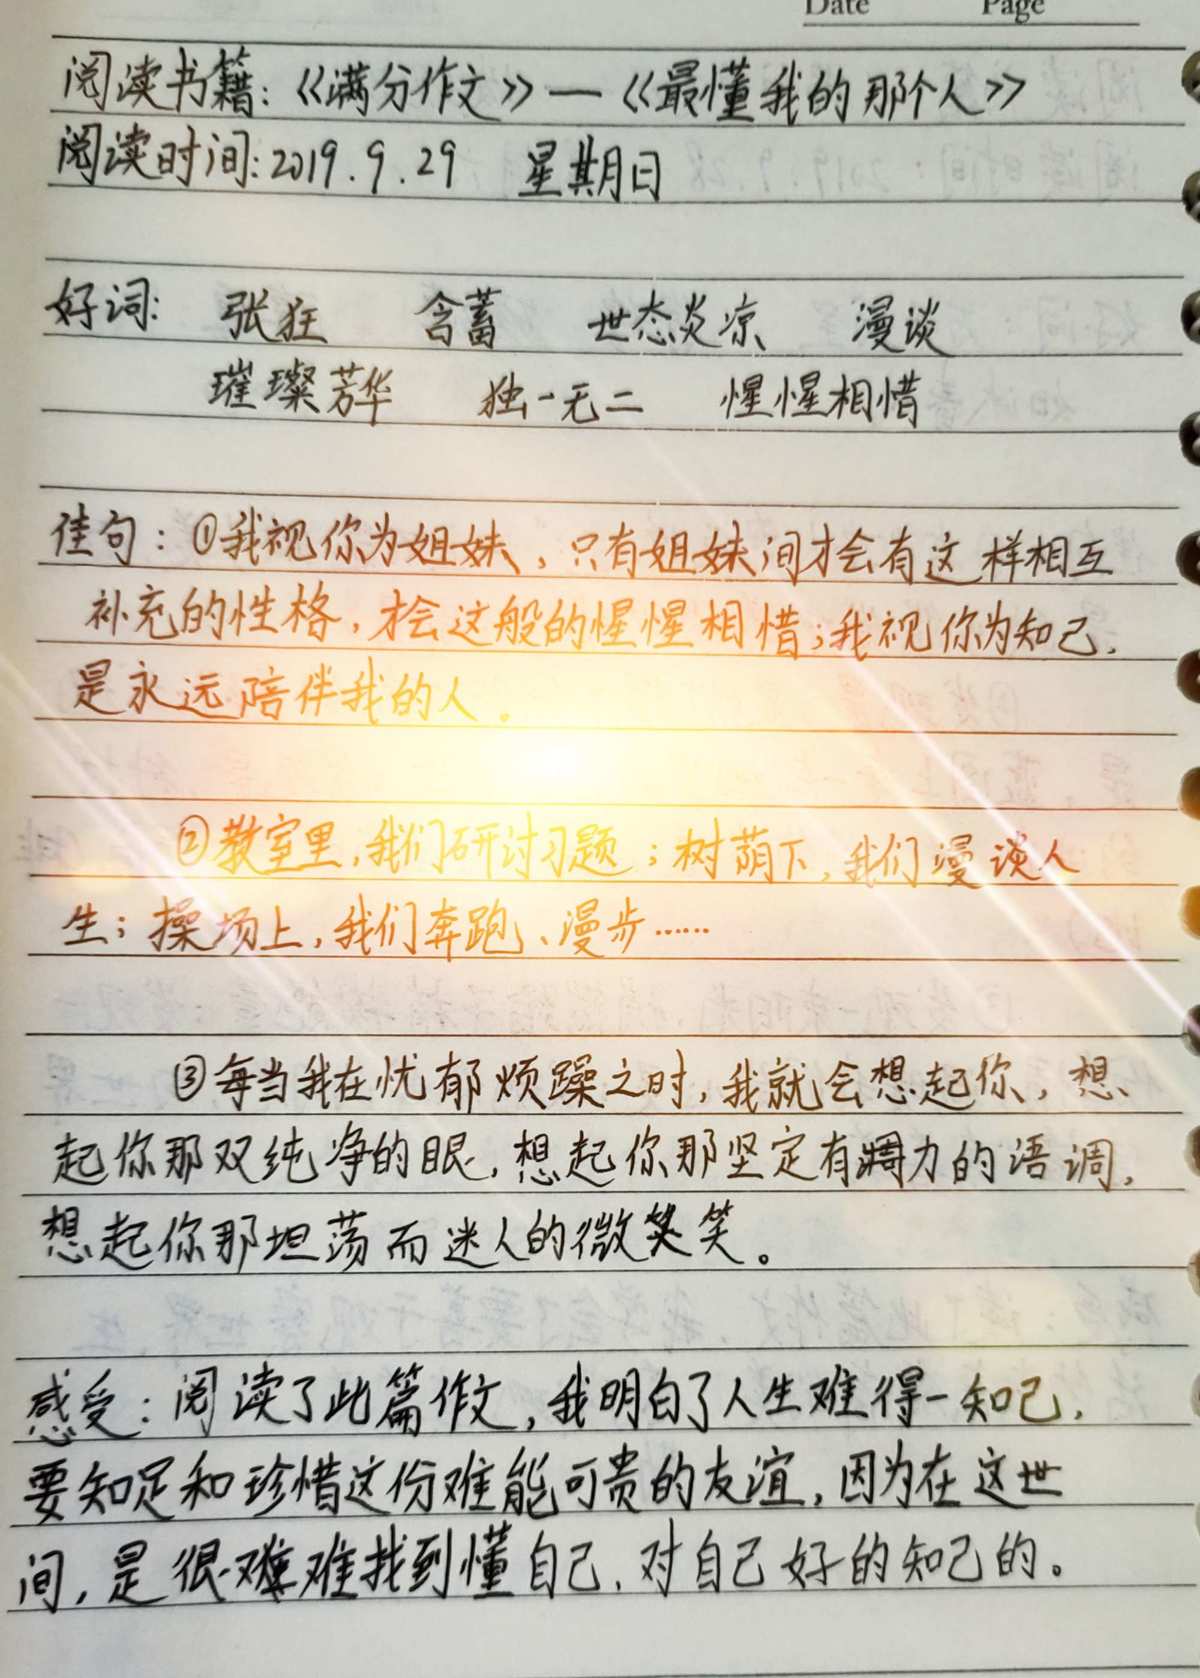 Date Page
阅读书籍:《满分作文》—《最懂我的那个人》
阅读时间:2019.9.29 星期日
好词: 张狂 含蓄 世态炎凉 漫谈
璀璨芳华 独一无二 惺惺相惜
佳句:①我视你为姐妹,只有姐妹间才会有这样相互
补充的性格,才会这般的惺惺相惜;我视你为知己,
是永远陪伴我的人。
②教室里,我们研讨习题;树荫下,我们漫谈人
生;操场上,我们奔跑、漫步……
③每当我在忧郁烦躁之时,我就会想起你,想
起你那双纯净的眼,想起你那坚定有力的语调,
想起你那坦荡而迷人的微笑。
感受:阅读了此篇作文,我明白了人生难得一知己,
要知足和珍惜这份难能可贵的友谊,因为在这世
间,是很难找到懂自己,对自己好的知己的。